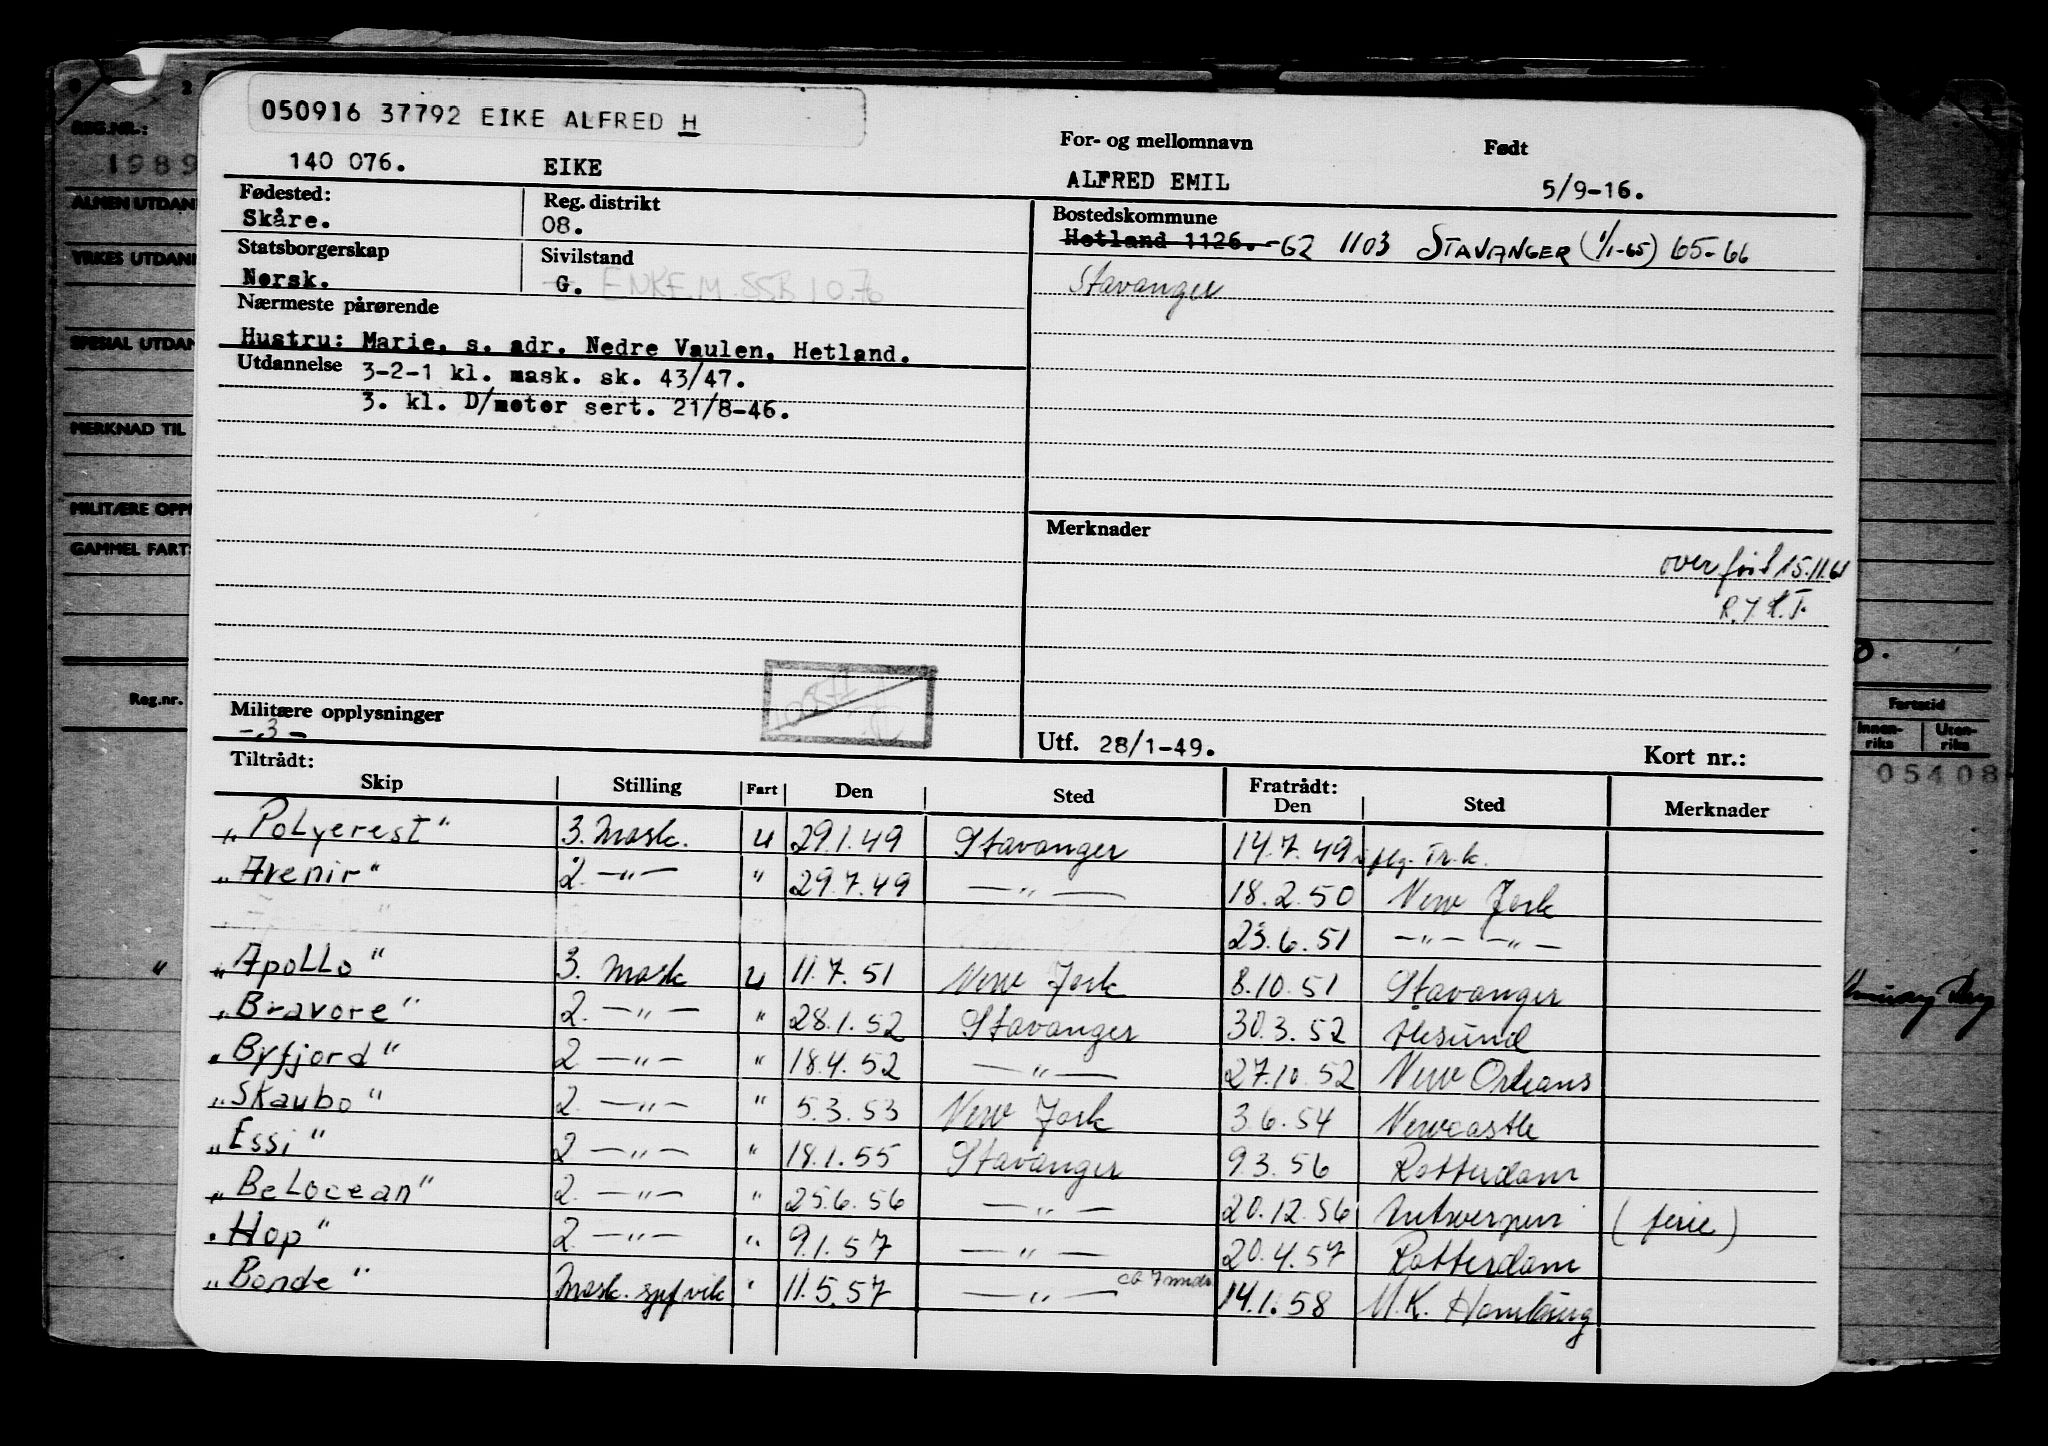 050916 37792 EIKE ALFRED H
140 076. EIKE
For- og mellomnavn Født
ALFRED EMIL 5/9-16.
Fødested: Reg. distrikt
Skåre. 08.
Statsborgerskap Sivilstand
Norsk. G. ENKEM SSB 10.76
Bostedskommune
Hetland 1126. -62 1103 STAVANGER (1/1-65) 65-66
Stavanger
Nærmeste pårørende
Hustru: Marie, s. adr. Nedre Vaulen, Hetland.
Utdannelse 3-2-1 kl. mask. sk. 43/47.
3. kl. D/moter sert. 21/8-46.
Merknader
overført 15.11.61
Militære opplysninger
-3-
Utf. 28/1-49. Kort nr.:
Tiltrådt: Fratrådt:
Skip Stilling Fart Den Sted Den Sted Merknader
„Polycrest" 3. Mask. u 29.1.49 Stavanger 14.7.49
„Avenir" 2. —„— " 29.7.49 —„— 18.2.50 New York
23.6.51 —„— —„—
„Apollo" 3. Mask u 11.7.51 New York 8.10.51 Stavanger
„Bravore" 2. —„— " 28.1.52 Stavanger 30.3.52 Ålesund
„Byfjord" 2 —„— " 18.4.52 —„— 27.10.52 New Orleans
„Skaubo" 2. —„— " 5.3.53 New York 3.6.54 Newcastle
„Essi" 2 —„— " 18.1.55 Stavanger 9.3.56 Rotterdam
„Belocean" 2. —„— " 25.6.56 —„— 20.12.56 Antwerpen (ferie)
„Hop" 2. —„— " 9.1.57 —„— 20.4.57 Rotterdam
„Bonde" Mask. " 11.5.57 —„— ca 7 mndr 14.1.58 M.K. Hamburg
REG.NR.:
1989
ALMEN UTDAN
YRKES UTDAN
SPESIAL UTDAN
MERKNAD TIL
MILITÆRE OPP
GAMMEL FART
Reg.nr.
Fartstid
Innen-riks Uten-riks
05408